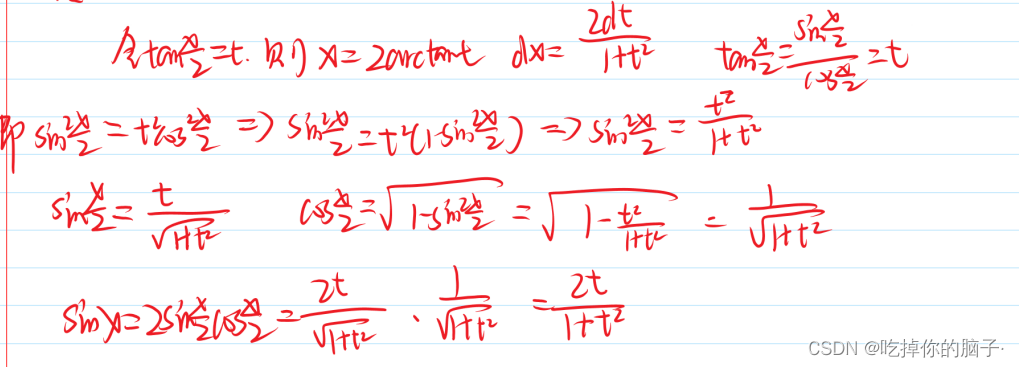 令tan x/2 = t. 则 x = 2arctant dx = 2dt/(1+t²) tan x/2 = (sin x/2)/(cos x/2) = t
即 sin² x/2 = t²cos² x/2 => sin² x/2 = t²(1-sin² x/2) => sin² x/2 = t²/(1+t²)
sin x/2 = t/√(1+t²) cos x/2 = √(1-sin² x/2) = √(1 - t²/(1+t²)) = 1/√(1+t²)
sinx = 2sin x/2 cos x/2 = 2t/√(1+t²) · 1/√(1+t²) = 2t/(1+t²)
CSDN @吃掉你的脑子·